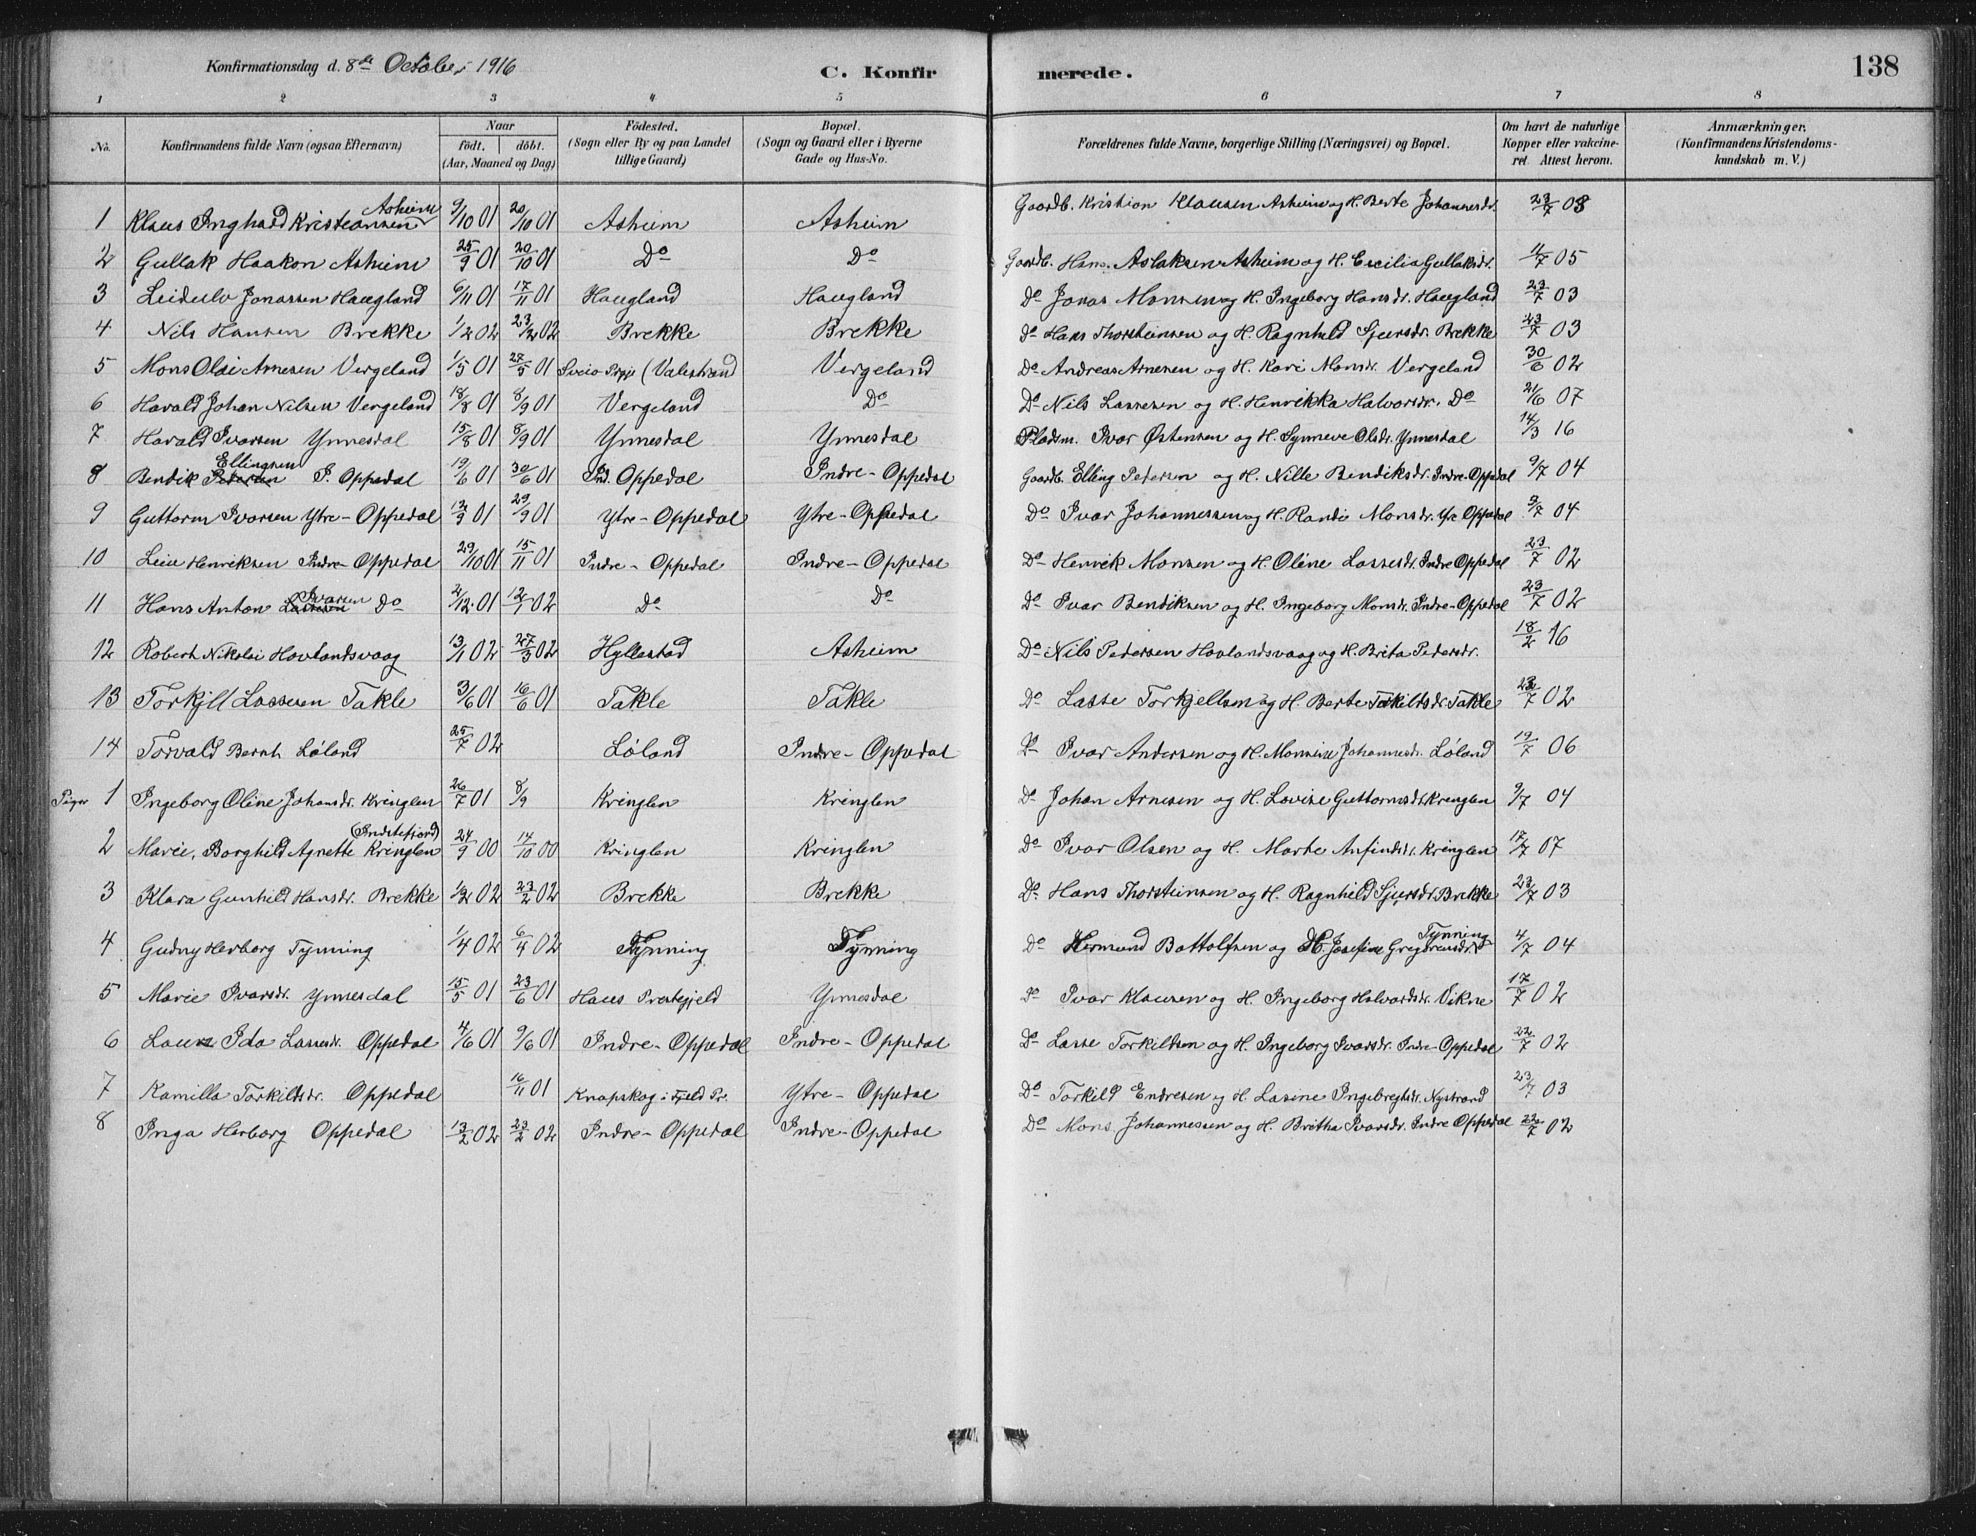 Konfirmationsdag d. 8de October 1916 C. Konfirmerede. 138
1 2 3 4 5 6 7 8
No. Konfirmandens fulde Navn (ogsaa Efternavn) Naar födt. döbt. (Aar, Maaned og Dag) Födested. (Sogn eller By og paa Landet tillige Gaard) Bopæl. (Sogn og Gaard eller i Byerne Gade og Hus-No. Forældrenes fulde Navne, borgerlige Stilling (Næringsvei) og Bopæl. Om havt de naturlige Kopper eller vakcineret. Attest herom. Anmærkninger. (Konfirmandens Kristendomskundskab m. V.)
1 Klaus Inghald Kristiansen Asheim 9/10 01 20/10 01 Asheim Asheim Gaardb. Kristian Klausen Asheim og H. Berte Johannesdr. 23/7 03
2 Gullak Haakon Asheim 25/9 01 20/10 01 Do Do Gaardb. Hans Aslaksen Asheim og H. Cecilia Gullaksdr. 11/7 05
3 Leidulv Jonassen Haugland 6/11 01 17/11 01 Haugland Haugland Do Jonas Monsen og H. Ingeborg Hansdr. Haugland 23/7 03
4 Nils Hansen Brekke 1/2 02 23/2 02 Brekke Brekke Do Hans Thorsteinsen og H. Ragnhild Sjursdr. Brekke 23/7 03
5 Mons Olai Arnesen Vergeland 1/5 01 27/5 01 Sveio Prgj (Valestrand Vergeland Do Andreas Arnesen og H. Kari Monsdr. Vergeland 30/6 02
6 Harald Johan Nilsen Vergeland 18/8 01 8/9 01 Vergeland Do Do Nils Lassesen og H. Henrikka Halvorsdr. Do 21/6 07
7 Harald Ivarsen Ynnesdal 15/8 01 8/9 01 Ynnesdal Ynnesdal Pladsm. Ivar Østensen og H. Synneve Olsdr. Ynnesdal 14/3 16
8 Bendik Pedersen Ellingsen I. Oppedal 19/6 01 30/6 01 Ind. Oppedal Indre-Oppedal Gaardb. Elling Petersen og H. Nille Bendiksdr. Indre-Oppedal 9/7 04
9 Guttorm Ivarsen Ytre-Oppedal 12/9 01 29/9 01 Ytre-Oppedal Ytre-Oppedal Do Ivar Johannessen og H. Randi Monsdr. Ytre Oppedal 9/7 04
10 Leiv Henriksen Indre-Oppedal 29/10 01 15/11 01 Indre-Oppedal Indre-Oppedal Do Henrik Monsen og H. Oline Lassesdr. Indre Oppedal 23/7 02
11 Hans Anton Lassesen Ivarsen Do 2/12 01 12/1 02 Do Do Do Ivar Bendiksen og H. Ingeborg Monsdr. Indre-Oppedal 23/7 02
12 Robert Nikolai Hovlandsvaag 13/1 02 27/3 02 Hyllestad Asheim Do Nils Pedersen Hovlandsvaag og H. Brita Pedersdr. 18/2 16
13 Torkjell Lassesen Takle 3/6 01 16/6 01 Takle Takle Do Lasse Torkjellsen og H. Berte Torkildsdr. Takle 23/7 02
14 Torvald Bernh Løland 25/7 02 Løland Indre-Oppedal Do Ivar Andersen og H. Monsine Johannesdr. Løland 19/7 06
Piger 1 Ingeborg Oline Johansdr. Kringlen 26/7 01 8/9 Kringlen Kringlen Do Johan Arnesen og H. Lovise Guttormsdr. Kringlen 9/7 04
2 Marie, Borghild Agnette Kringlen (Indrefjord) 24/9 00 14/10 00 Kringlen Kringlen Do Ivar Olsen og H. Marte Anfinsdr. Kringlen 17/7 07
3 Klara Gunhild Hansdr. Brekke 1/2 02 23/2 02 Brekke Brekke Do Hans Thorsteinsen og H. Ragnhild Sjursdr. Brekke 23/7 03
4 Gudny Herborg Tynning 1/4 02 6/4 02 Tynning Tynning Do Hermund Bottolfsen og H. Josefine Gregoriusdr. Tynning 4/7 04
5 Marie Ivarsdr. Ynnesdal 15/5 01 23/6 01 Haus Prestegjeld Ynnesdal Do Ivar Klausen og H. Ingeborg Halvardsdr. Vikne 17/7 02
6 Laura Ida Lassesdr. Oppedal 4/6 01 9/6 01 Indre-Oppedal Indre-Oppedal Do Lasse Torkildsen og H. Ingeborg Ivarsdr. Indre-Oppedal 22/7 02
7 Kamilla Torkildsdr. Oppedal 16/11 01 Knapskog i Fjeld Pr. Ytre-Oppedal Do Torkild Endresen og H. Lasine Ingebregtsdr. Nystrand 23/7 03
8 Inga Herborg Oppedal 13/2 02 23/2 02 Indre-Oppedal Indre-Oppedal Do Mons Johannessen og H. Britha Ivarsdr. Indre Oppedal 22/7 02